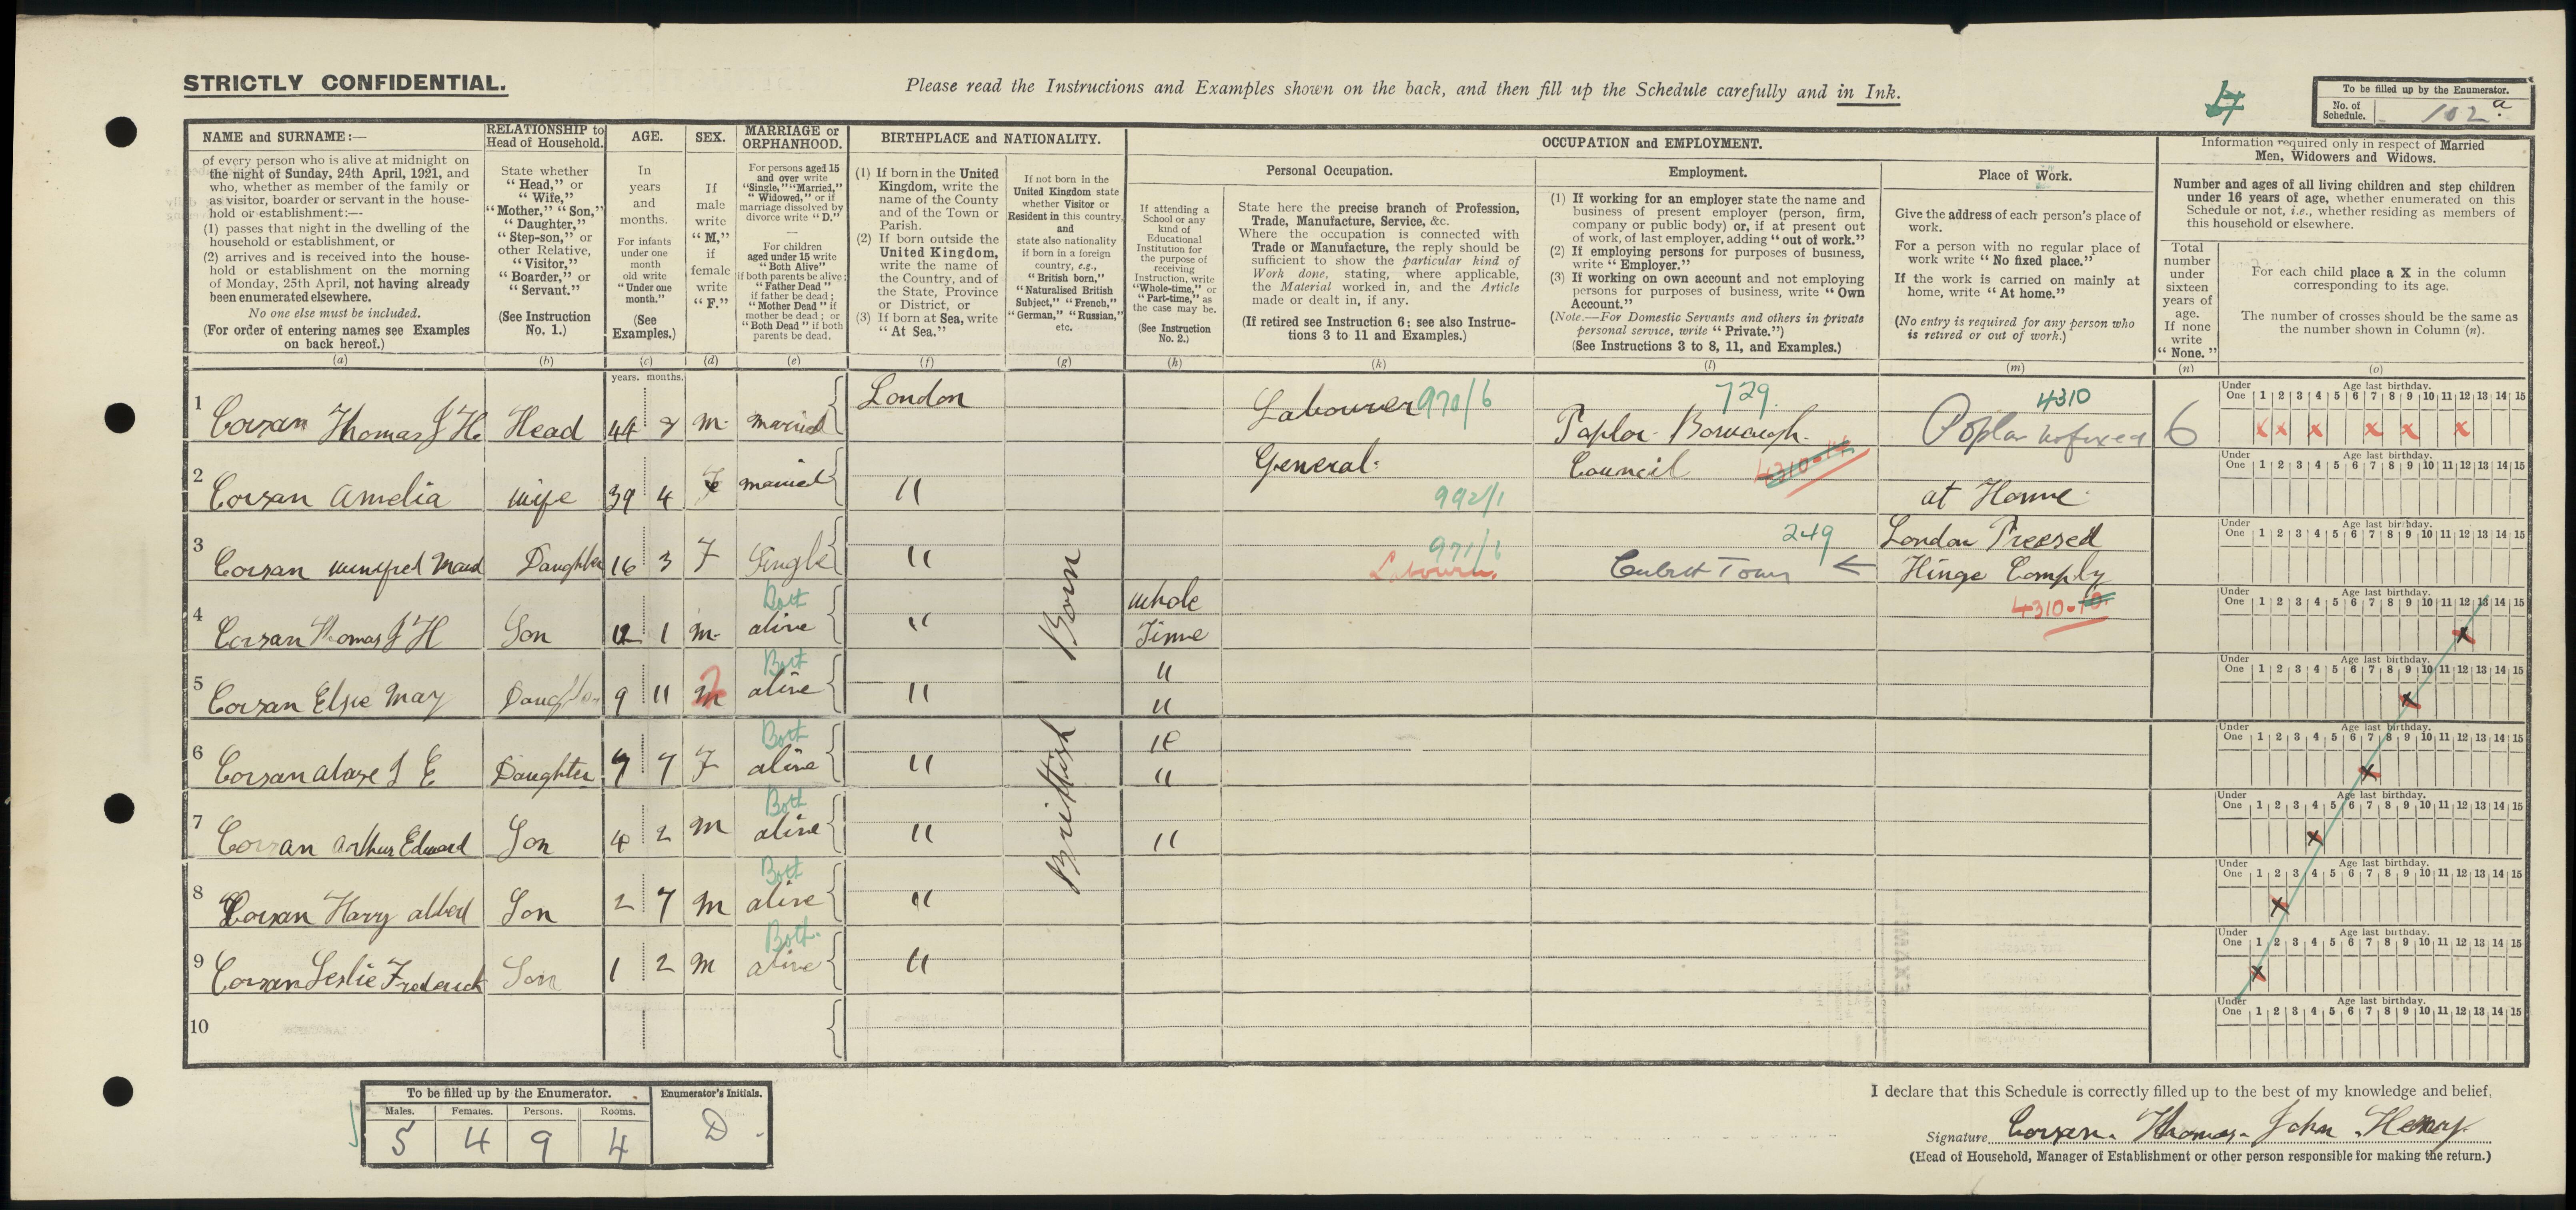 STRICTLY CONFIDENTIAL.
Please read the Instructions and Examples shown on the back, and then fill up the Schedule carefully and in Ink.
17
To be filled up by the Enumerator.
No. of Schedule.
102 a
NAME and SURNAME:—
of every person who is alive at midnight on
the night of Sunday, 24th April, 1921, and
who, whether as member of the family or
as visitor, boarder or servant in the house-
hold or establishment:—
(1) passes that night in the dwelling of the
household or establishment, or
(2) arrives and is received into the house-
hold or establishment on the morning
of Monday, 25th April, not having already
been enumerated elsewhere.
No one else must be included.
(For order of entering names see Examples
on back hereof.)
(a)
RELATIONSHIP to
Head of Household.
State whether
"Head," or
"Wife,"
"Mother," "Son,"
"Daughter,"
"Step-son," or
other Relative,
"Visitor,"
"Boarder," or
"Servant."
(See Instruction
No. 1.)
(b)
AGE.
In
years
and
months.
For infants
under one
month
old write
"Under one
month."
(See
Examples.)
(c)
years. months.
SEX.
If
male
write
"M,"
if
female
write
"F."
(d)
MARRIAGE or
ORPHANHOOD.
For persons aged 15
and over write
"Single," "Married,"
"Widowed," or if
marriage dissolved by
divorce write "D."
For children
aged under 15 write
"Both Alive"
if both parents be alive;
"Father Dead"
if father be dead;
"Mother Dead" if
mother be dead; or
"Both Dead" if both
parents be dead.
(e)
BIRTHPLACE and NATIONALITY.
(1) If born in the United
Kingdom, write the
name of the County
and of the Town or
Parish.
(2) If born outside the
United Kingdom,
write the name of
the Country, and of
the State, Province
or District, or
(3) If born at Sea, write
"At Sea."
(f)
If not born in the
United Kingdom state
whether Visitor or
Resident in this country,
and
state also nationality
if born in a foreign
country, e.g.,
"British born,"
"Naturalised British
Subject," "French,"
"German," "Russian,"
etc.
(g)
OCCUPATION and EMPLOYMENT.
If attending a
School or any
kind of
Educational
Institution for
the purpose of
receiving
Instruction, write
"Whole-time," or
"Part-time," as
the case may be.
(See Instruction
No. 2.)
(h)
Personal Occupation.
State here the precise branch of Profession,
Trade, Manufacture, Service, &c.
Where the occupation is connected with
Trade or Manufacture, the reply should be
sufficient to show the particular kind of
Work done, stating, where applicable,
the Material worked in, and the Article
made or dealt in, if any.
(If retired see Instruction 6: see also Instruc-
tions 3 to 11 and Examples.)
(k)
Employment.
(1) If working for an employer state the name and
business of present employer (person, firm,
company or public body) or, if at present out
of work, of last employer, adding "out of work."
(2) If employing persons for purposes of business,
write "Employer."
(3) If working on own account and not employing
persons for purposes of business, write "Own
Account."
(Note.—For Domestic Servants and others in private
personal service, write "Private.")
(See Instructions 3 to 8, 11, and Examples.)
(l)
Place of Work.
Give the address of each person's place of
work.
For a person with no regular place of
work write "No fixed place."
If the work is carried on mainly at
home, write "At home."
(No entry is required for any person who
is retired or out of work.)
(m)
Information required only in respect of Married
Men, Widowers and Widows.
Number and ages of all living children and step children
under 16 years of age, whether enumerated on this
Schedule or not, i.e., whether residing as members of
this household or elsewhere.
Total
number
under
sixteen
years of
age.
If none
write
"None."
(n)
For each child place a X in the column
corresponding to its age.
The number of crosses should be the same as
the number shown in Column (n).
(o)
Under One Age last birthday. 1 2 3 4 5 6 7 8 9 10 11 12 13 14 15
1 Corsan Thomas J H. Head 44 m. married London Labourer 970/6 729 4310
General. Poplar Borough. Council 4310-14 Poplar no fixed 6 x x x x x x
Under One Age last birthday. 1 2 3 4 5 6 7 8 9 10 11 12 13 14 15
2 Corsan Amelia wife 39 4 F married " 992/1 at Home.
Under One Age last birthday. 1 2 3 4 5 6 7 8 9 10 11 12 13 14 15
3 Corsan Winifred Maud Daughter 16 3 F Single " 971/6 Labourer. 249 Cubitt Town ← London Pressed
Hinge Comply
4310-10
Under One Age last birthday. 1 2 3 4 5 6 7 8 9 10 11 12 13 14 15
4 Corsan Thomas J H Son 12 1 m. Both alive " whole Time x
Under One Age last birthday. 1 2 3 4 5 6 7 8 9 10 11 12 13 14 15
5 Corsan Elsie May Daughter 9 11 m Both alive " " " x
Under One Age last birthday. 1 2 3 4 5 6 7 8 9 10 11 12 13 14 15
6 Corsan J E Daughter 7 7 F Both alive " " " x
Under One Age last birthday. 1 2 3 4 5 6 7 8 9 10 11 12 13 14 15
7 Corsan Arthur Edward Son 4 2 m Both alive " " x
Under One Age last birthday. 1 2 3 4 5 6 7 8 9 10 11 12 13 14 15
8 Corsan Harry Albert Son 2 7 m Both alive " x
Under One Age last birthday. 1 2 3 4 5 6 7 8 9 10 11 12 13 14 15
9 Corsan Leslie Frederick Son 1 2 m Both. alive " x
Under One Age last birthday. 1 2 3 4 5 6 7 8 9 10 11 12 13 14 15
10
Brittish Born
To be filled up by the Enumerator.
Enumerator's Initials.
Males. Females. Persons. Rooms.
5 4 9 4 D.
I declare that this Schedule is correctly filled up to the best of my knowledge and belief.
Signature Corsan. Thomas. John. Henry
(Head of Household, Manager of Establishment or other person responsible for making the return.)